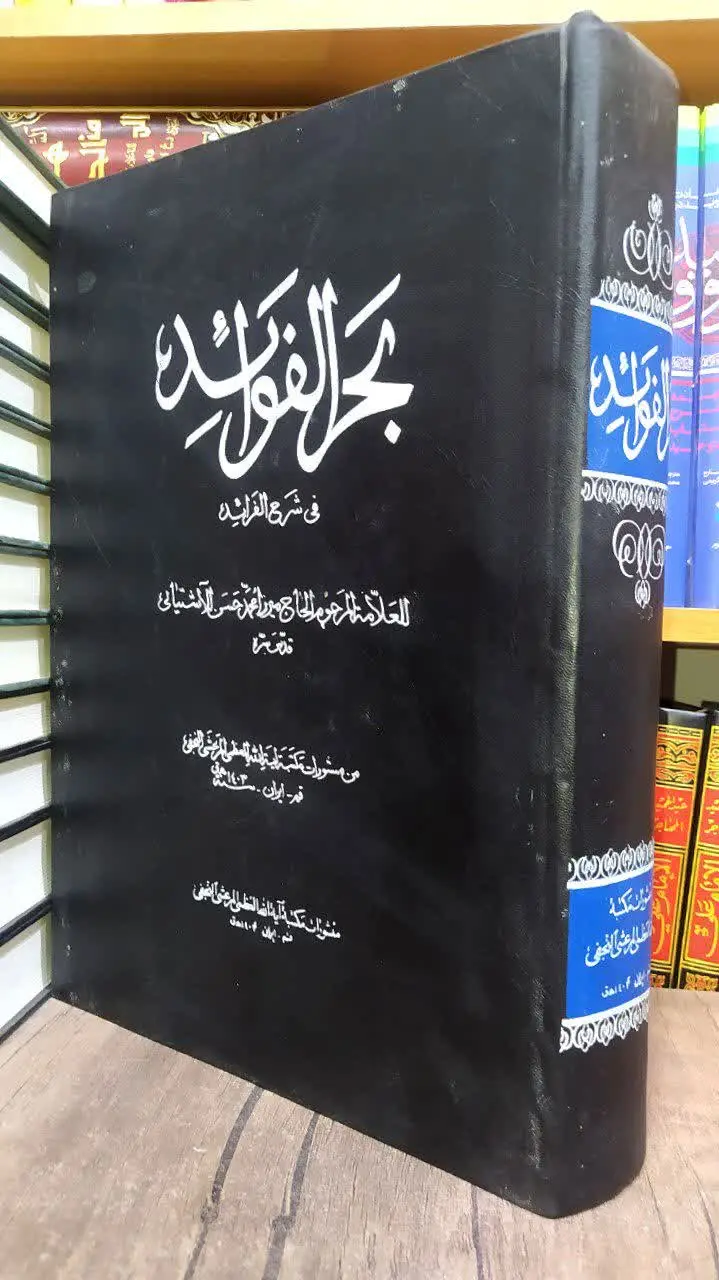 بحر الفوائد
فى شرح الفرائد
للعلامة المرحوم الحاج ميرزا محمد حسن الآشتيانى
قدس سره
من منشورات مكتبة آية الله العظمى المرعشى النجفى
قم - ايران - سنة ١٤٠٣ هـ ق
منشورات مكتبة آية الله العظمى المرعشى النجفى
قم - ايران ١٤٠٤ هـ ق
الفوائد
منشورات مكتبة
المرعشى النجفى
ايران ١٤٠٤ هـ ق